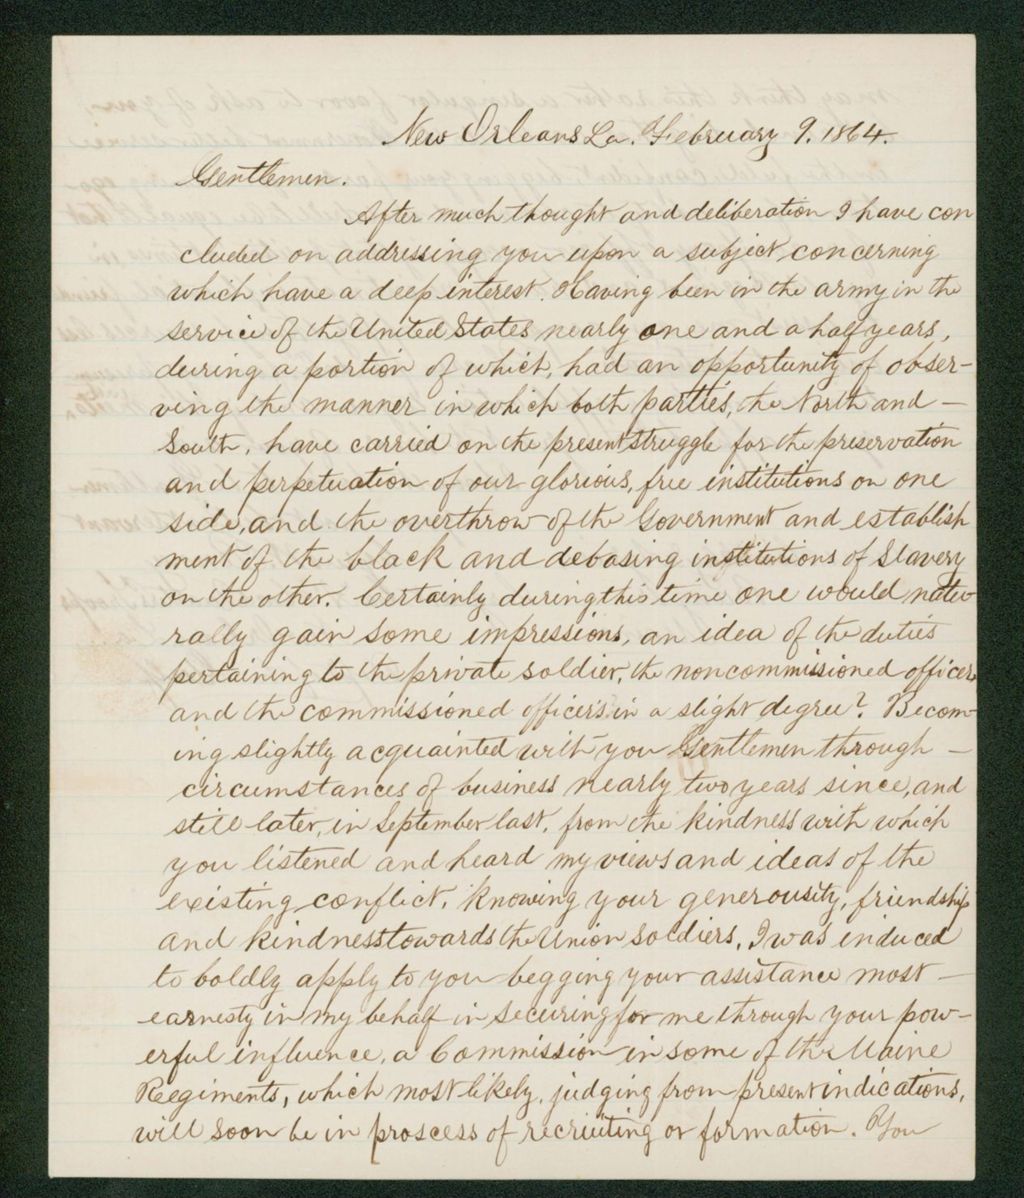 New Orleans La. February 9. 1864.
Gentlemen.
After much thought and deliberation I have con
cluded on addressing you upon a subject, concerning
which have a deep interest. Having been in the army in the
service of the United States nearly one and a half years,
during a portion of which, had an opportunity of obser-
ving the manner in which both parties, the North and —
South, have carried on the present struggle for the preservation
and perpetuation of our glorious, free institutions on one
side, and the overthrow of the Government and establish
ment of the black and debasing institutions of Slavery
on the other. Certainly during this time one would natu
rally gain some impressions, an idea of the duties
pertaining to the private soldier, the noncommissioned officer
and the commissioned officers in a slight degree? Becom-
ing slightly acquainted with you Gentlemen through —
circumstances of business nearly two years since, and
still later, in September last, from the kindness with which
you listened and heard my views and ideas of the
existing conflict, knowing your generousity, friendship
and kindness towards the Union soldiers, I was induced
to boldly apply to you begging your assistance most —
earnesty in my behalf in securing for me through your pow-
erful influence, a Commission in some of the Maine
Regiments, which most likely, judging from present indications,
will soon be in proscess of recruiting or formation. You